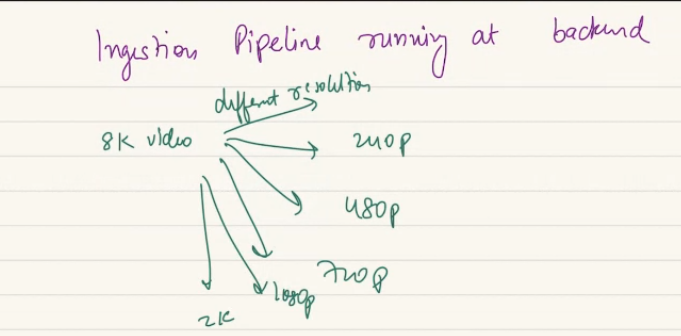 Ingestion Pipeline running at backend
different resolution
8K video
240p
480p
720p
1080p
2K